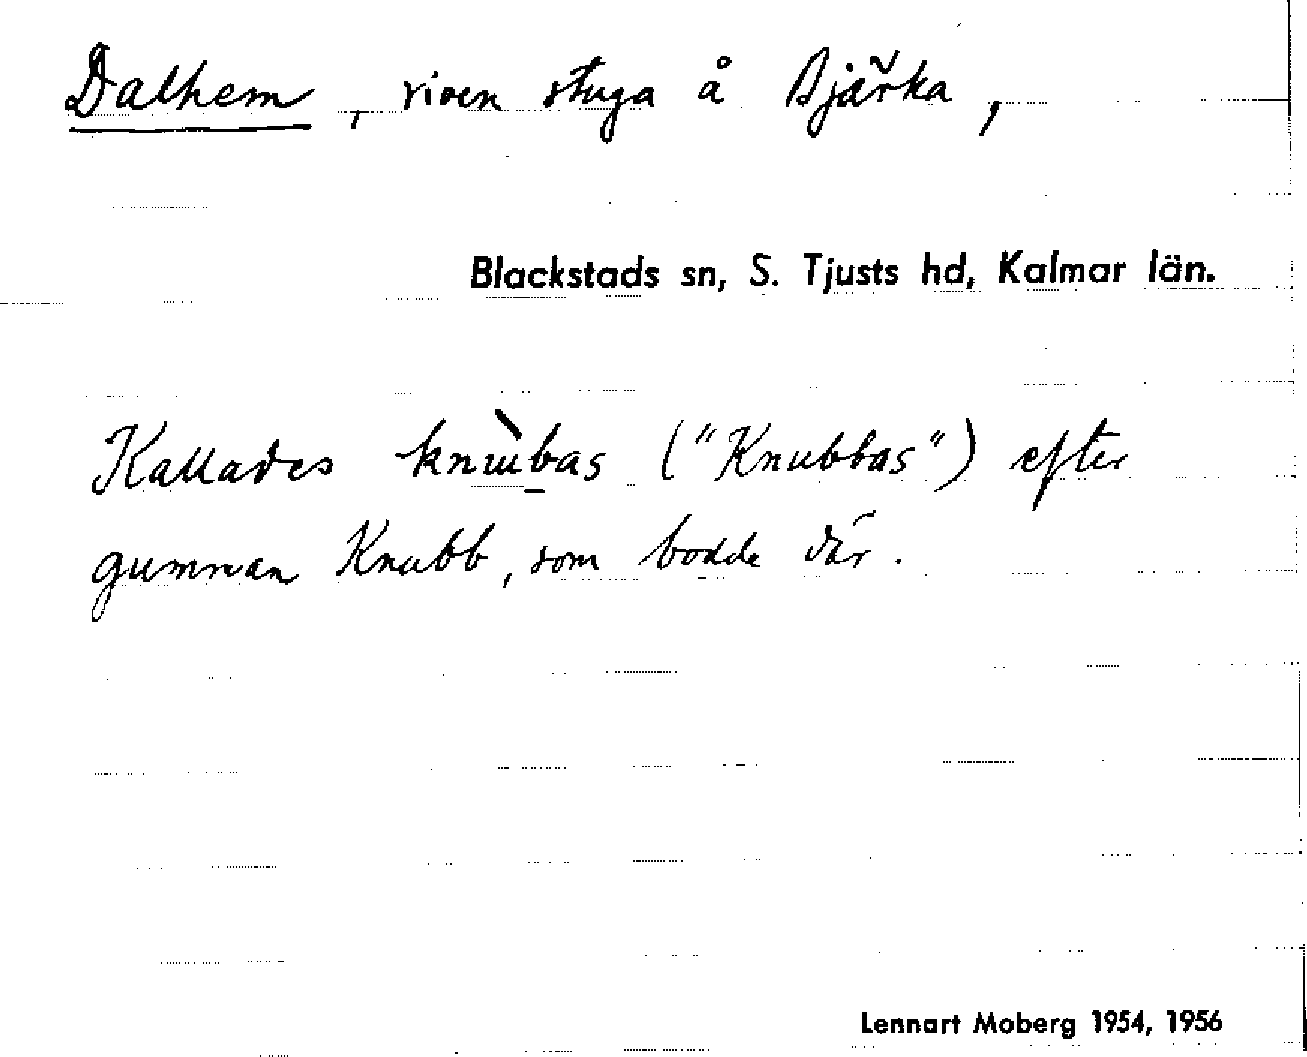 Dalhem, riven stuga å Bjärka,
Blackstads sn, S. Tjusts hd, Kalmar län.
Kallades ("Knubbas") efter
gumman Knubb, som bodde där.
Lennart Moberg 1954, 1956